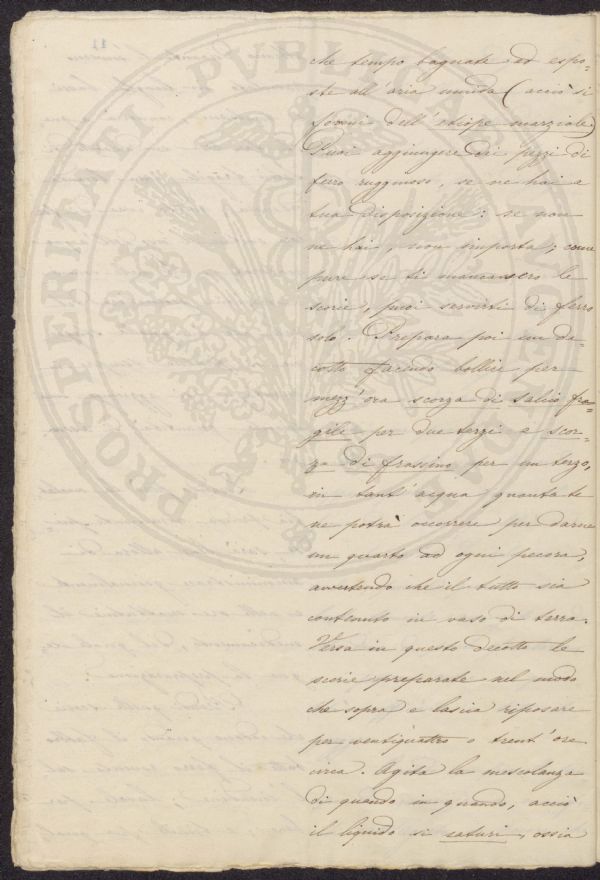 11
che tempo bagnate ed espo-
ste all'aria umida (acciò si
formi dell'etiope marziale)
Puoi aggiungere dei pezzi di
ferro rugginoso, se ne hai a
tua disposizione: se non
ne hai, non importa; come
pure se ti mancassero le
scorie, puoi servirti di ferro
solo. Prepara poi un de-
cotto facendo bollire per
mezz'ora scorza di salice fra-
gile per due terzi e scor-
za di frassino per un terzo,
in tant'acqua quanta te
ne potrà occorrere per darne
un quarto ad ogni pecora,
avvertendo che il tutto sia
contenuto in vaso di terra.
Versa in questo decotto le
scorie preparate nel modo
che sopra e lascia riposare
per ventiquattro o trent'ore
circa. Agita la mescolanza
di quando in quando, acciò
il liquido si saturi, ossia
PROSPERITATI PUBLICAE AUGENDAE